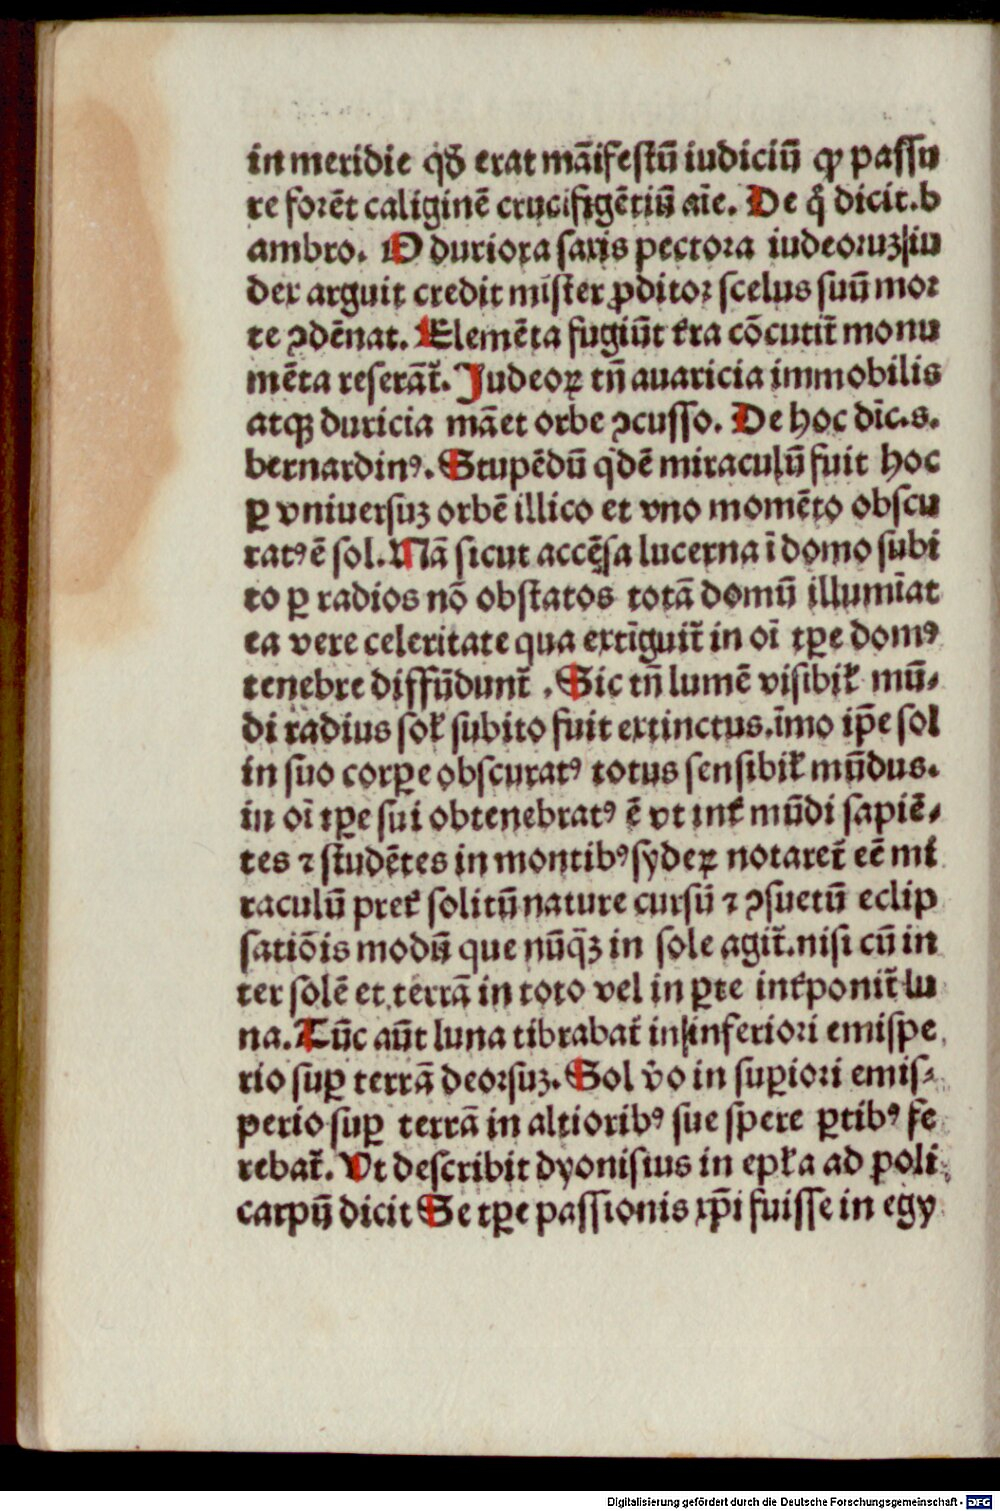 in meridie qđ erat māifestū iudiciū ꝙ passu
re forēt caliginē crucifigētiū aīe. De q̊ dicit.b
ambro. O duriora saxis pectora iudeoruz iu
dex arguit credit mīster ꝓditor scelus suū mor
te ꝯdēnat. Elemēta fugiūt tr̄a cōcutit᷑ monu
mēta reserāt᷑. Judeoꝝ tn̄ auaricia immobilis
atqꝫ duricia māet orbe ꝯcusso. De hoc dīc.s.
bernardinꝰ. Stupēdū qͥdē miraculū fuit hoc
ꝑ vniuersuz orbē illico et vno momēto obscu
ratꝰ ē sol. Nā sicut accēsa lucerna ī domo subi
to ꝑ radios nō obstatos totā domū illumīat
ea vere celeritate qua extīguit᷑ in oī tꝑe domꝰ
tenebre diffūdunt᷑ . Sic tn̄ lumē visibil̓ mū⸗
di radius sol̓ subito fuit extinctus.īmo ip̄e sol
in suo corꝑe obscuratꝰ totus sensibil̓ mūdus.
in oī tꝑe sui obtenebratꝰ ē vt int̓ mūdi sapiē⸗
tes ⁊ studētes in montibꝰ syderꝝ notaret᷑ eē mi
raculū pret̓ solitū nature cursū ⁊ ꝯsuetū eclip
satiōis modū que nūq̄ꝫ in sole agit᷑.nisi cū in
ter solē et terrā in toto vel in ꝑte int̓ponit᷑ lu
na. Tūc aūt luna tibrabat᷑ in inferiori emispe
rio suꝑ terrā deorsuz. Sol v̊o in suꝑiori emis⸗
perio suꝑ terrā in altioribꝰ sue spere ꝑtibꝰ fe
rebat᷑. Vt describit dyonisius in epl̓a ad poli
carpū dicit Se tꝑe passionis xp̄i fuisse in egy
Digitalisierung gefördert durch die Deutsche Forschungsgemeinschaft - DFG